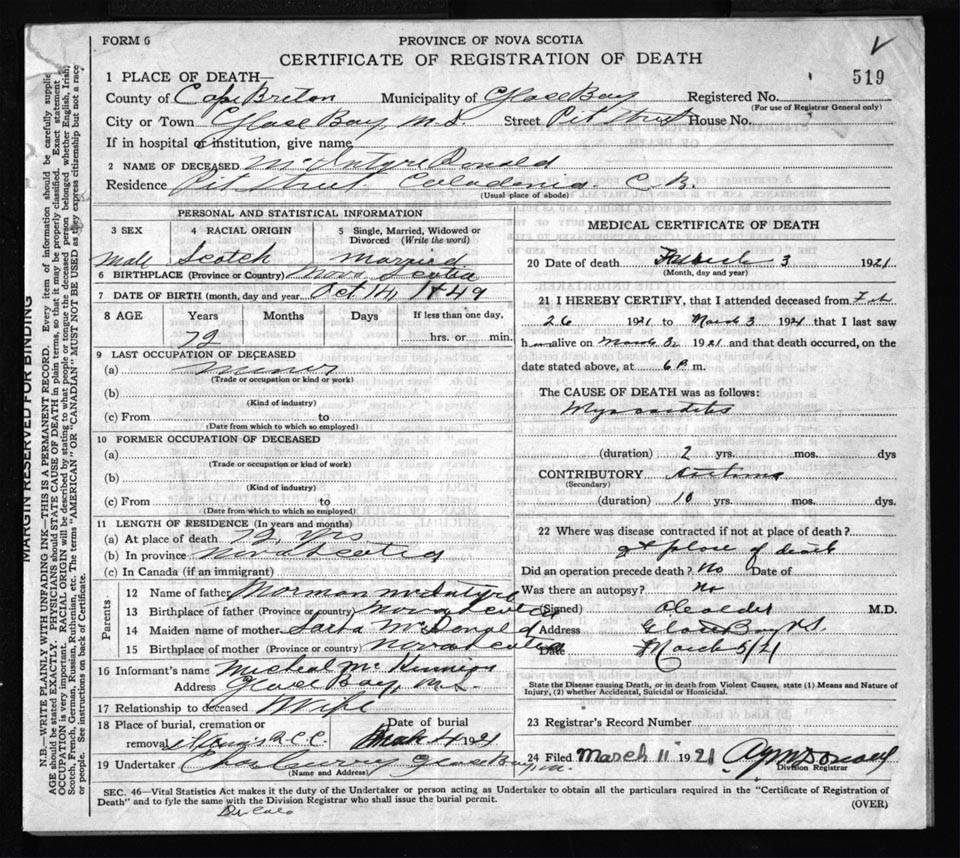 FORM 6
PROVINCE OF NOVA SCOTIA
CERTIFICATE OF REGISTRATION OF DEATH
519
1 PLACE OF DEATH—
County of Cape Breton Municipality of Glace Bay Registered No.
(For use of Registrar General only)
City or Town Glace Bay, N.S. Street Pit Street House No.
If in hospital or institution, give name
2 NAME OF DECEASED McIntyre Donald
Residence Pit Street Caladonia C.B.
(Usual place of abode)
PERSONAL AND STATISTICAL INFORMATION
3 SEX
4 RACIAL ORIGIN
5 Single, Married, Widowed or
Divorced (Write the word)
Male Scotch Married
6 BIRTHPLACE (Province or Country) Nova Scotia
7 DATE OF BIRTH (month, day and year) Oct 14, 1849
8 AGE Years Months Days If less than one day,
72 hrs. or min.
9 LAST OCCUPATION OF DECEASED
(a) Miner
(Trade or occupation or kind of work)
(b)
(Kind of industry)
(c) From to
(Date from which to which so employed)
10 FORMER OCCUPATION OF DECEASED
(a)
(Trade or occupation or kind of work)
(b)
(Kind of industry)
(c) From to
(Date from which to which so employed)
11 LENGTH OF RESIDENCE (In years and months)
(a) At place of death 72 yrs
(b) In province Nova Scotia
(c) In Canada (if an immigrant)
Parents
12 Name of father Norman McIntyre
13 Birthplace of father (Province or country) Nova Scotia
14 Maiden name of mother Sarha McDonald
15 Birthplace of mother (Province or country) Nova Scotia
16 Informant's name Micheal McKinnion
Address Glace Bay, N.S.
17 Relationship to deceased Wife
18 Place of burial, cremation or
removal
Date of burial
March 4 1921
19 Undertaker Chas Curry Glace Bay, N.S.
(Name and Address)
MEDICAL CERTIFICATE OF DEATH
20 Date of death March 3 1921
(Month, day and year)
21 I HEREBY CERTIFY, that I attended deceased from Feb
26 1921 to March 3 1921 that I last saw
him alive on March 3, 1921 and that death occurred, on the
date stated above, at 6 P. m.
The CAUSE OF DEATH was as follows:
Myocarditis
(duration) 2 yrs. mos. dys
CONTRIBUTORY Asthma
(Secondary)
(duration) 10 yrs. mos. dys.
22 Where was disease contracted if not at place of death?
at place of death
Did an operation precede death? No Date of
Was there an autopsy? No
(Signed) M.D.
Address Glace Bay N.S.
Date March 5/21
State the Disease causing Death, or in death from Violent Causes, state (1) Means and Nature of
Injury, (2) whether Accidental, Suicidal or Homicidal.
23 Registrar's Record Number
24 Filed March 11 1921
Division Registrar
SEC. 46—Vital Statistics Act makes it the duty of the Undertaker or person acting as Undertaker to obtain all the particulars required in the "Certificate of Registration of
Death" and to fyle the same with the Division Registrar who shall issue the burial permit.
(OVER)
MARGIN RESERVED FOR BINDING
N.B.—WRITE PLAINLY WITH UNFADING INK—THIS IS A PERMANENT RECORD. Every item of information should be carefully supplied
AGE should be stated EXACTLY. PHYSICIANS should STATE CAUSE OF DEATH in plain terms, so that it may be properly classified. Exact statement
OCCUPATION is very important. RACIAL ORIGIN will be described by stating to what people or tongue the deceased person belonged whether English, Irish,
Scotch, French, German, Russian, Ruthenian, etc. The terms "AMERICAN" OR "CANADIAN" MUST NOT BE USED as they express citizenship but not a race
or people. See instructions on back of Certificate.